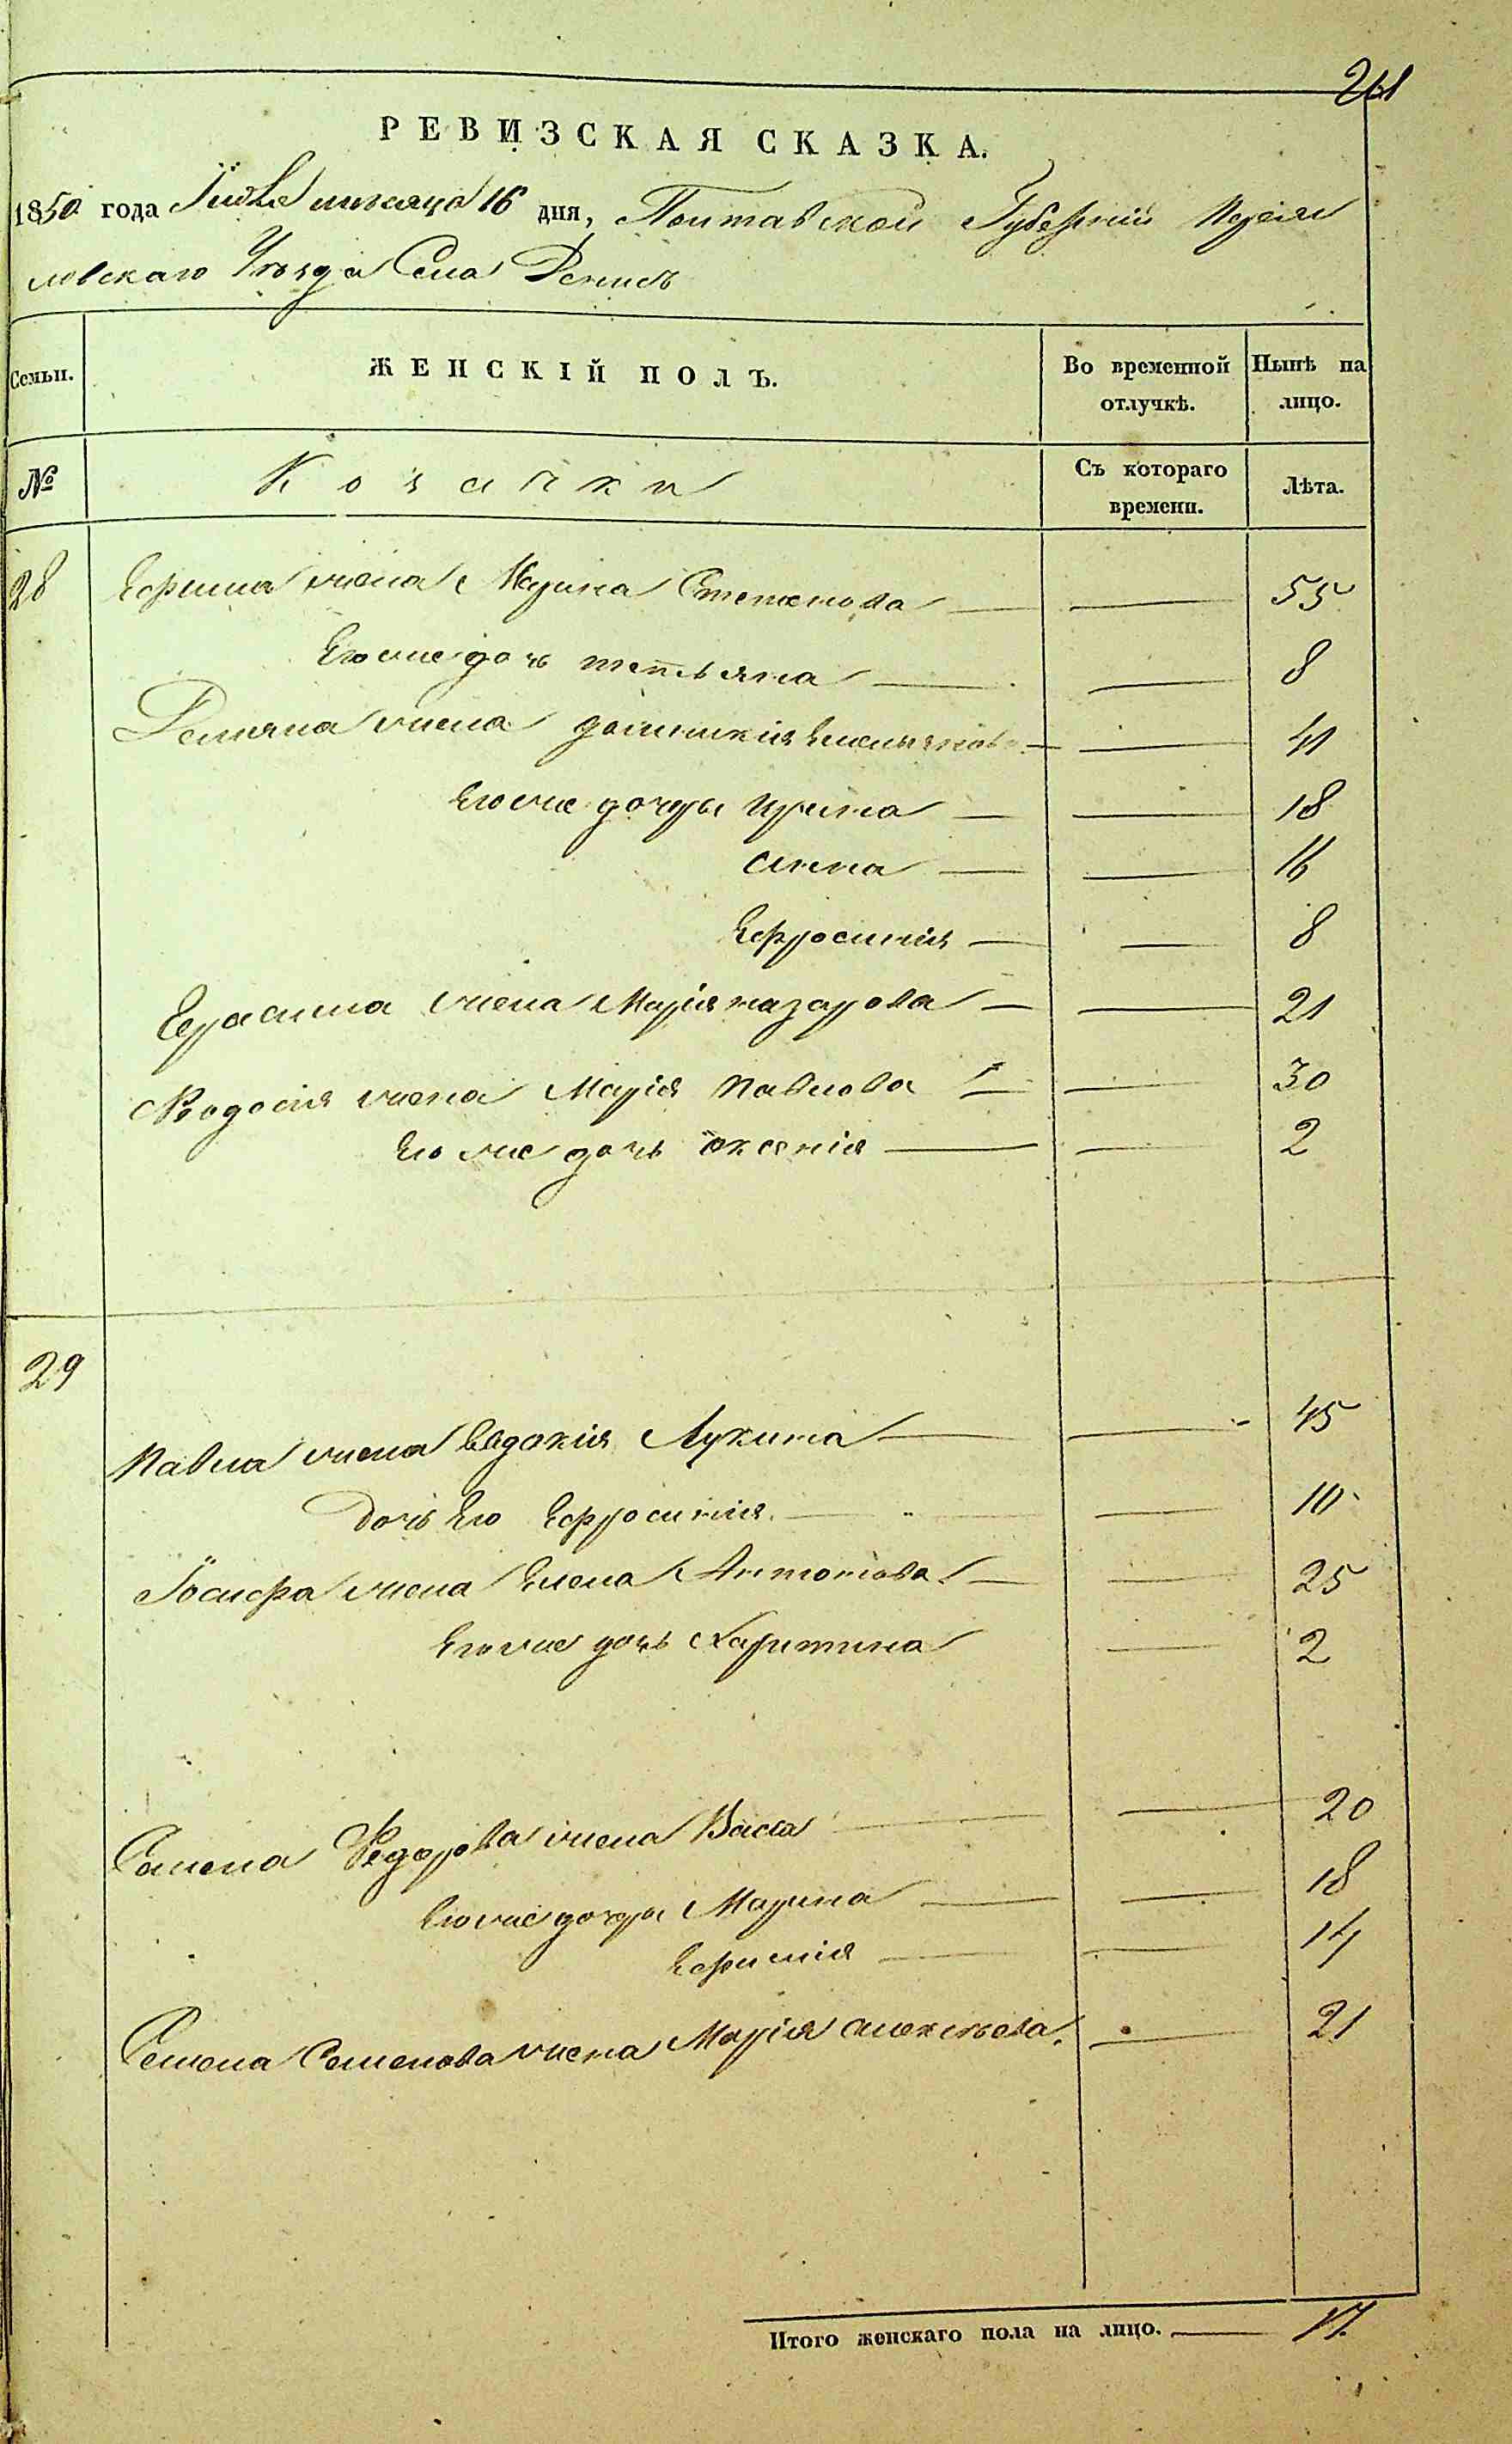 261
РЕВИЗСКАЯ СКАЗКА.
1850 года Июля месяца 16 дня, Полтавской Губерніи Переяс
ловскаго Уѣзда Села Денисъ
Семьи. ЖЕНСКІЙ ПОЛЪ. Во временной отлучкѣ. Нынѣ на лицо.
№ Козачки Съ котораго времени. Лѣта.
28 Ефима жена Марина Степанова 55
Его же дочь Тетьяна 8
Демяна жена Домникія Емельянова 41
Его же дочери Ирина 18
Анна 16
Ефросинія 8
Герасима жена Марія Назарова 21
Феодосія жена Марія Павлова 30
Его же дочь Оксенія 2
29
Павла жена Евдокія Лукина 45
Дочь Его Ефросинія 10
Іосифа жена Елена Антонова 25
Его же дочь Харитина 2
Самена Федорова жена Васса 20
Его же дочери Марина 18
Ефимія 14
Семена Семенова жена Марія Алексѣева 21
Итого женскаго пола на лицо. 17.